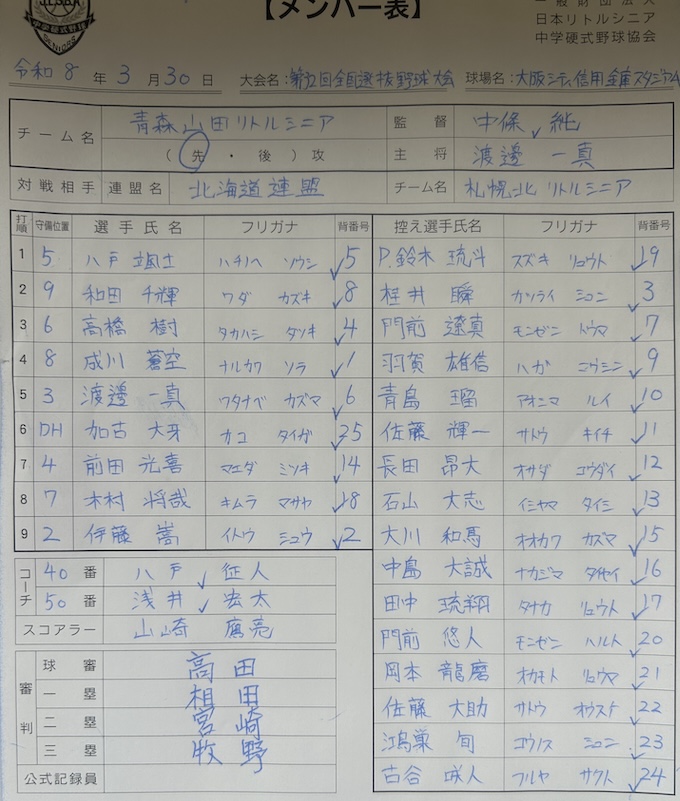 【メンバー表】
一般財団法人
日本リトルシニア
中学硬式野球協会
中学硬式野球
SENIORS
令和 8 年 3 月 30 日 大会名: 全国選抜野球大会 球場名: 大阪シティ信用金庫スタジアム
チーム名 青森山田リトルシニア 監督 中條 純
( 先 ・ 後 ) 攻 主将 渡邊 一真
対戦相手 連盟名 北海道連盟 チーム名 札幌北リトルシニア
打順 守備位置 選手氏名 フリガナ 背番号 控え選手氏名 フリガナ 背番号
1 5 八戸 颯士 ハチノヘ ソウシ 5 P.鈴木 琉斗 スズキ リュウト 19
2 9 和田 千輝 ワダ カズキ 8 桂井 瞬 カツライ シュン 3
3 6 高橋 樹 タカハシ タツキ 4 門前 遼真 モンゼン トウマ 7
4 8 成川 蒼空 ナルカワ ソラ 1 羽賀 雄信 ハガ ユウシン 9
5 3 渡邊 一真 ワタナベ カズマ 6 青島 瑠 アオシマ ルイ 10
6 DH 加古 大牙 カコ タイガ 25 佐藤 輝一 サトウ キイチ 11
7 4 前田 光喜 マエダ ミツキ 14 長田 昂大 オサダ コウダイ 12
8 7 木村 将哉 キムラ マサヤ 18 石山 大志 イシヤマ タイシ 13
9 2 伊藤 嵩 イトウ シュウ 2 大川 和馬 オオカワ カズマ 15
中島 大誠 ナカジマ タイセイ 16
コーチ 40 番 八戸 征人
田中 琉翔 タナカ リュウト 17
50 番 浅井 宏太
スコアラー 山崎 鷹亮
門前 悠人 モンゼン ハルト 20
審判 球審 高田
岡本 龍磨 オカモト リュウマ 21
一塁 相田
佐藤 大助 サトウ オウスケ 22
二塁 宮崎
鴻巣 旬 コウノス シュン 23
三塁 牧野
古谷 咲人 フルヤ サクト 24
公式記録員